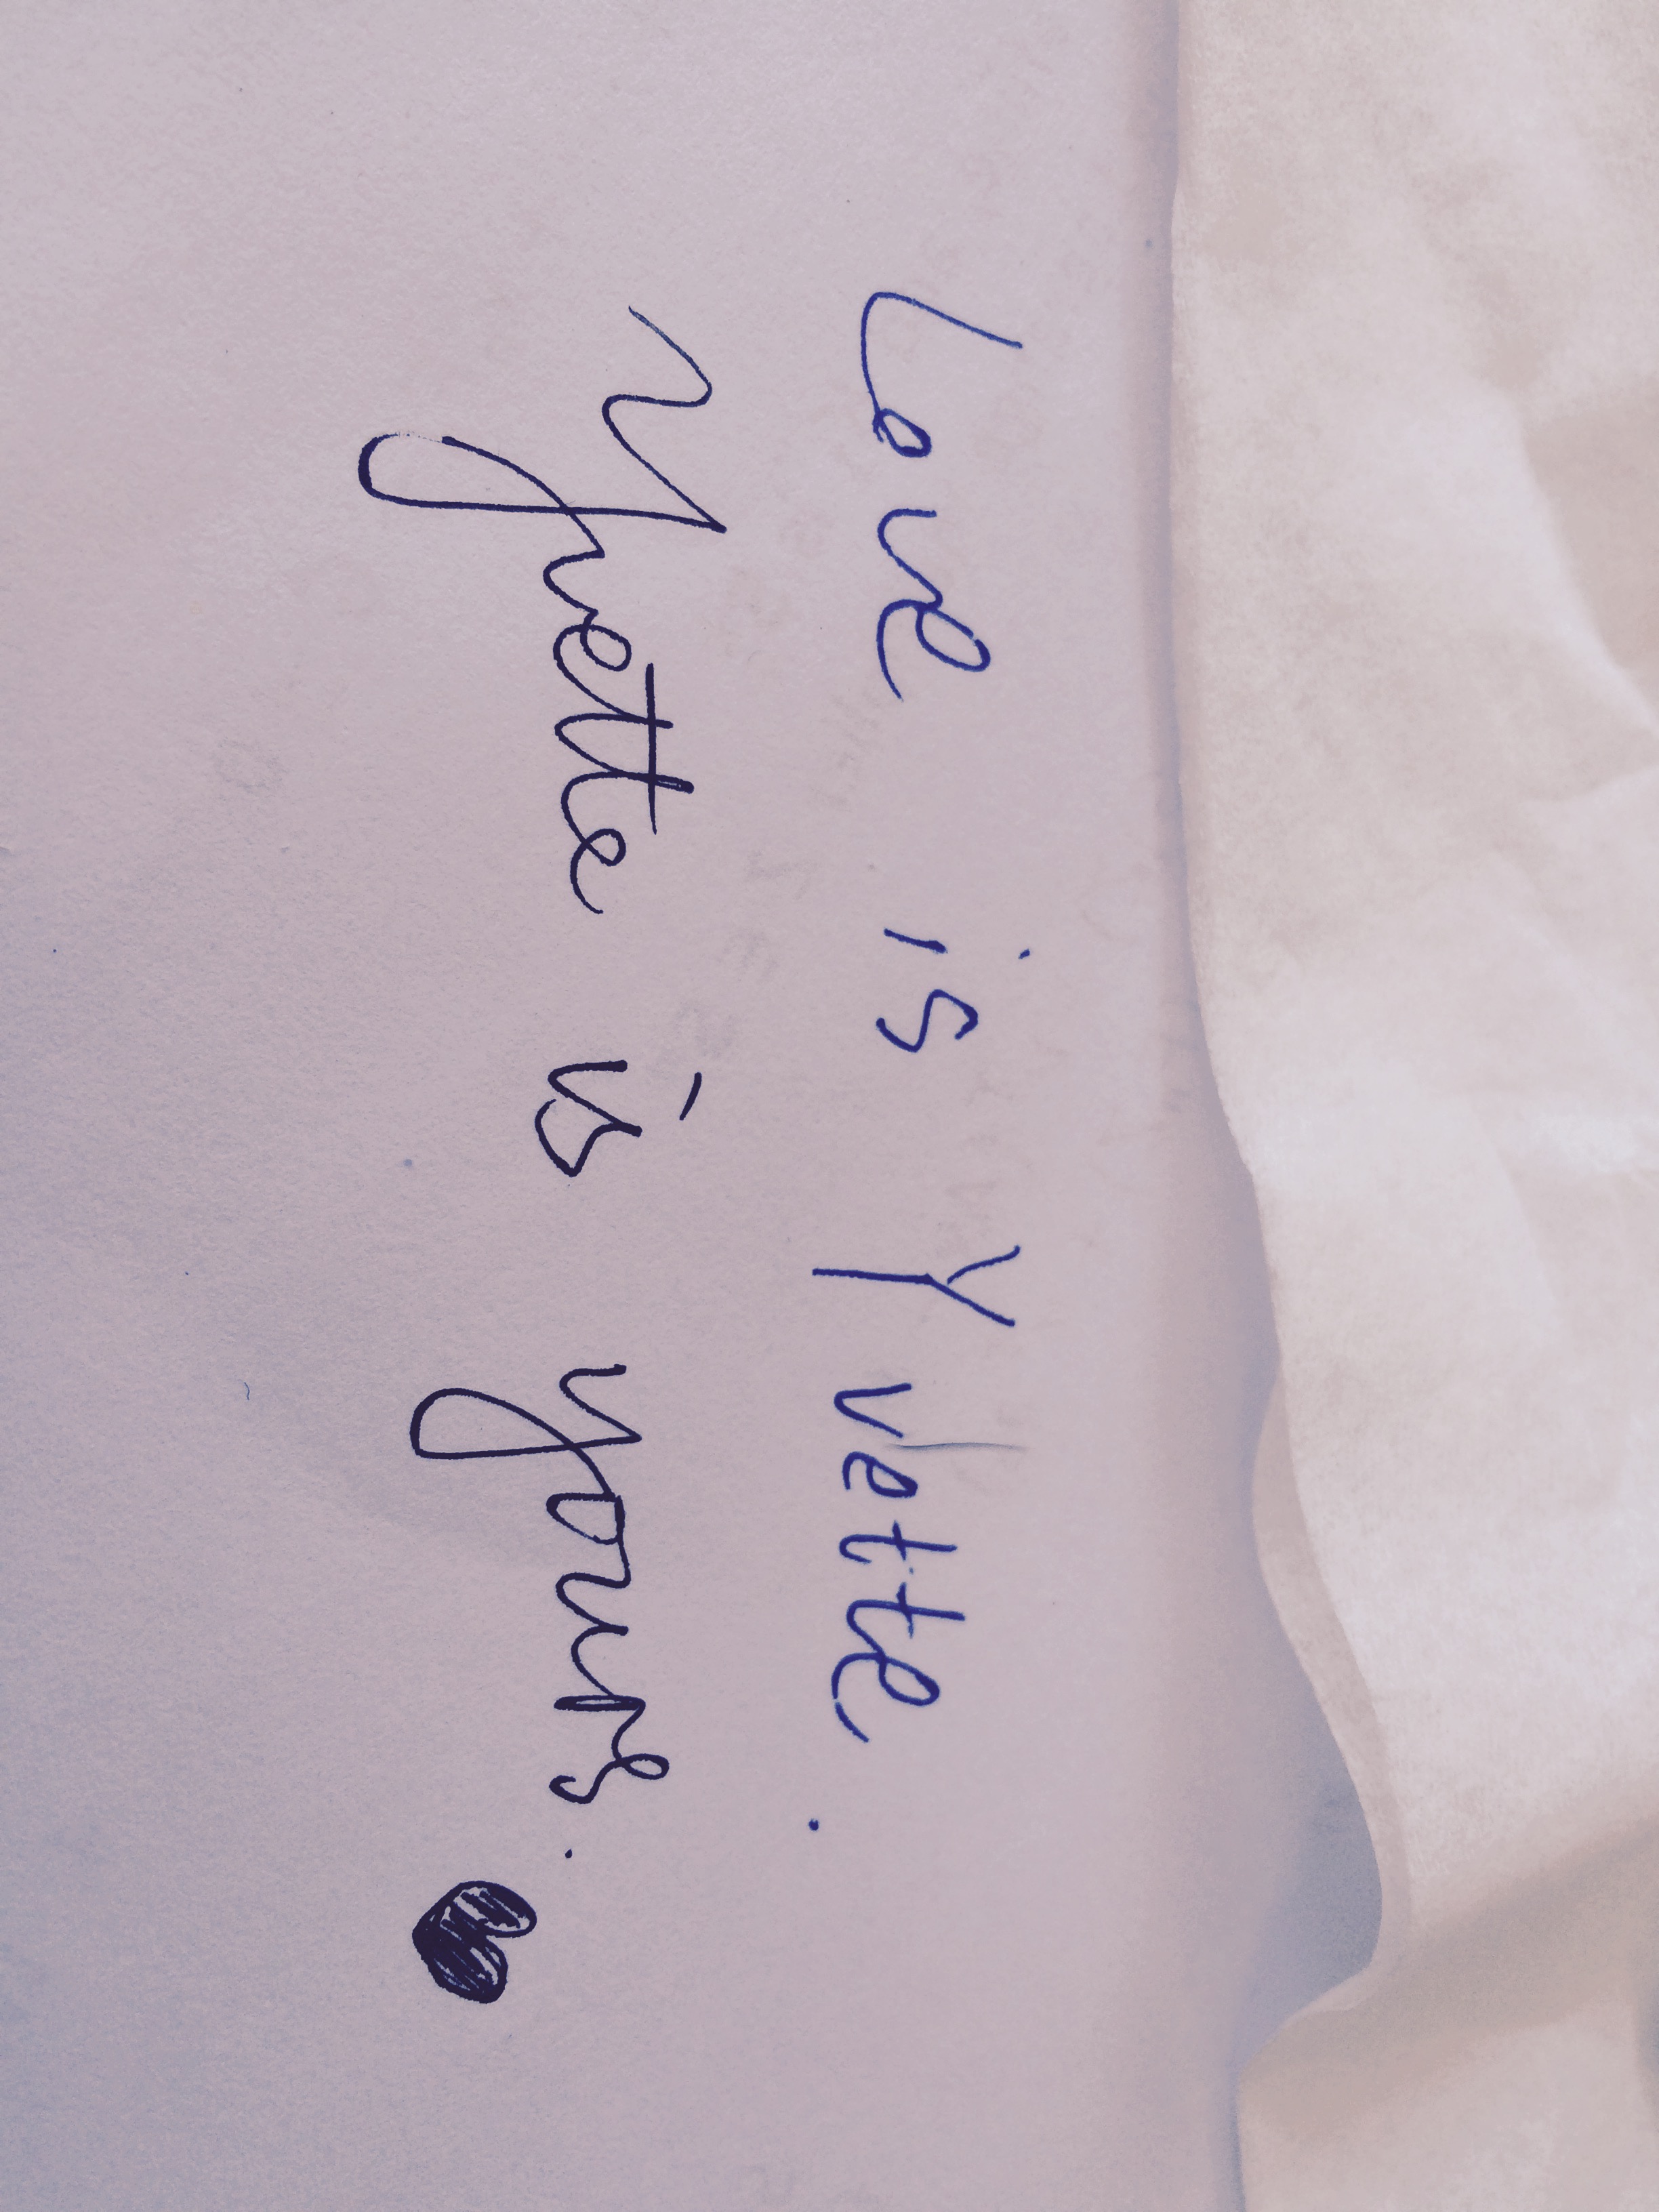 Love is Yvette.
Yvette is yours.